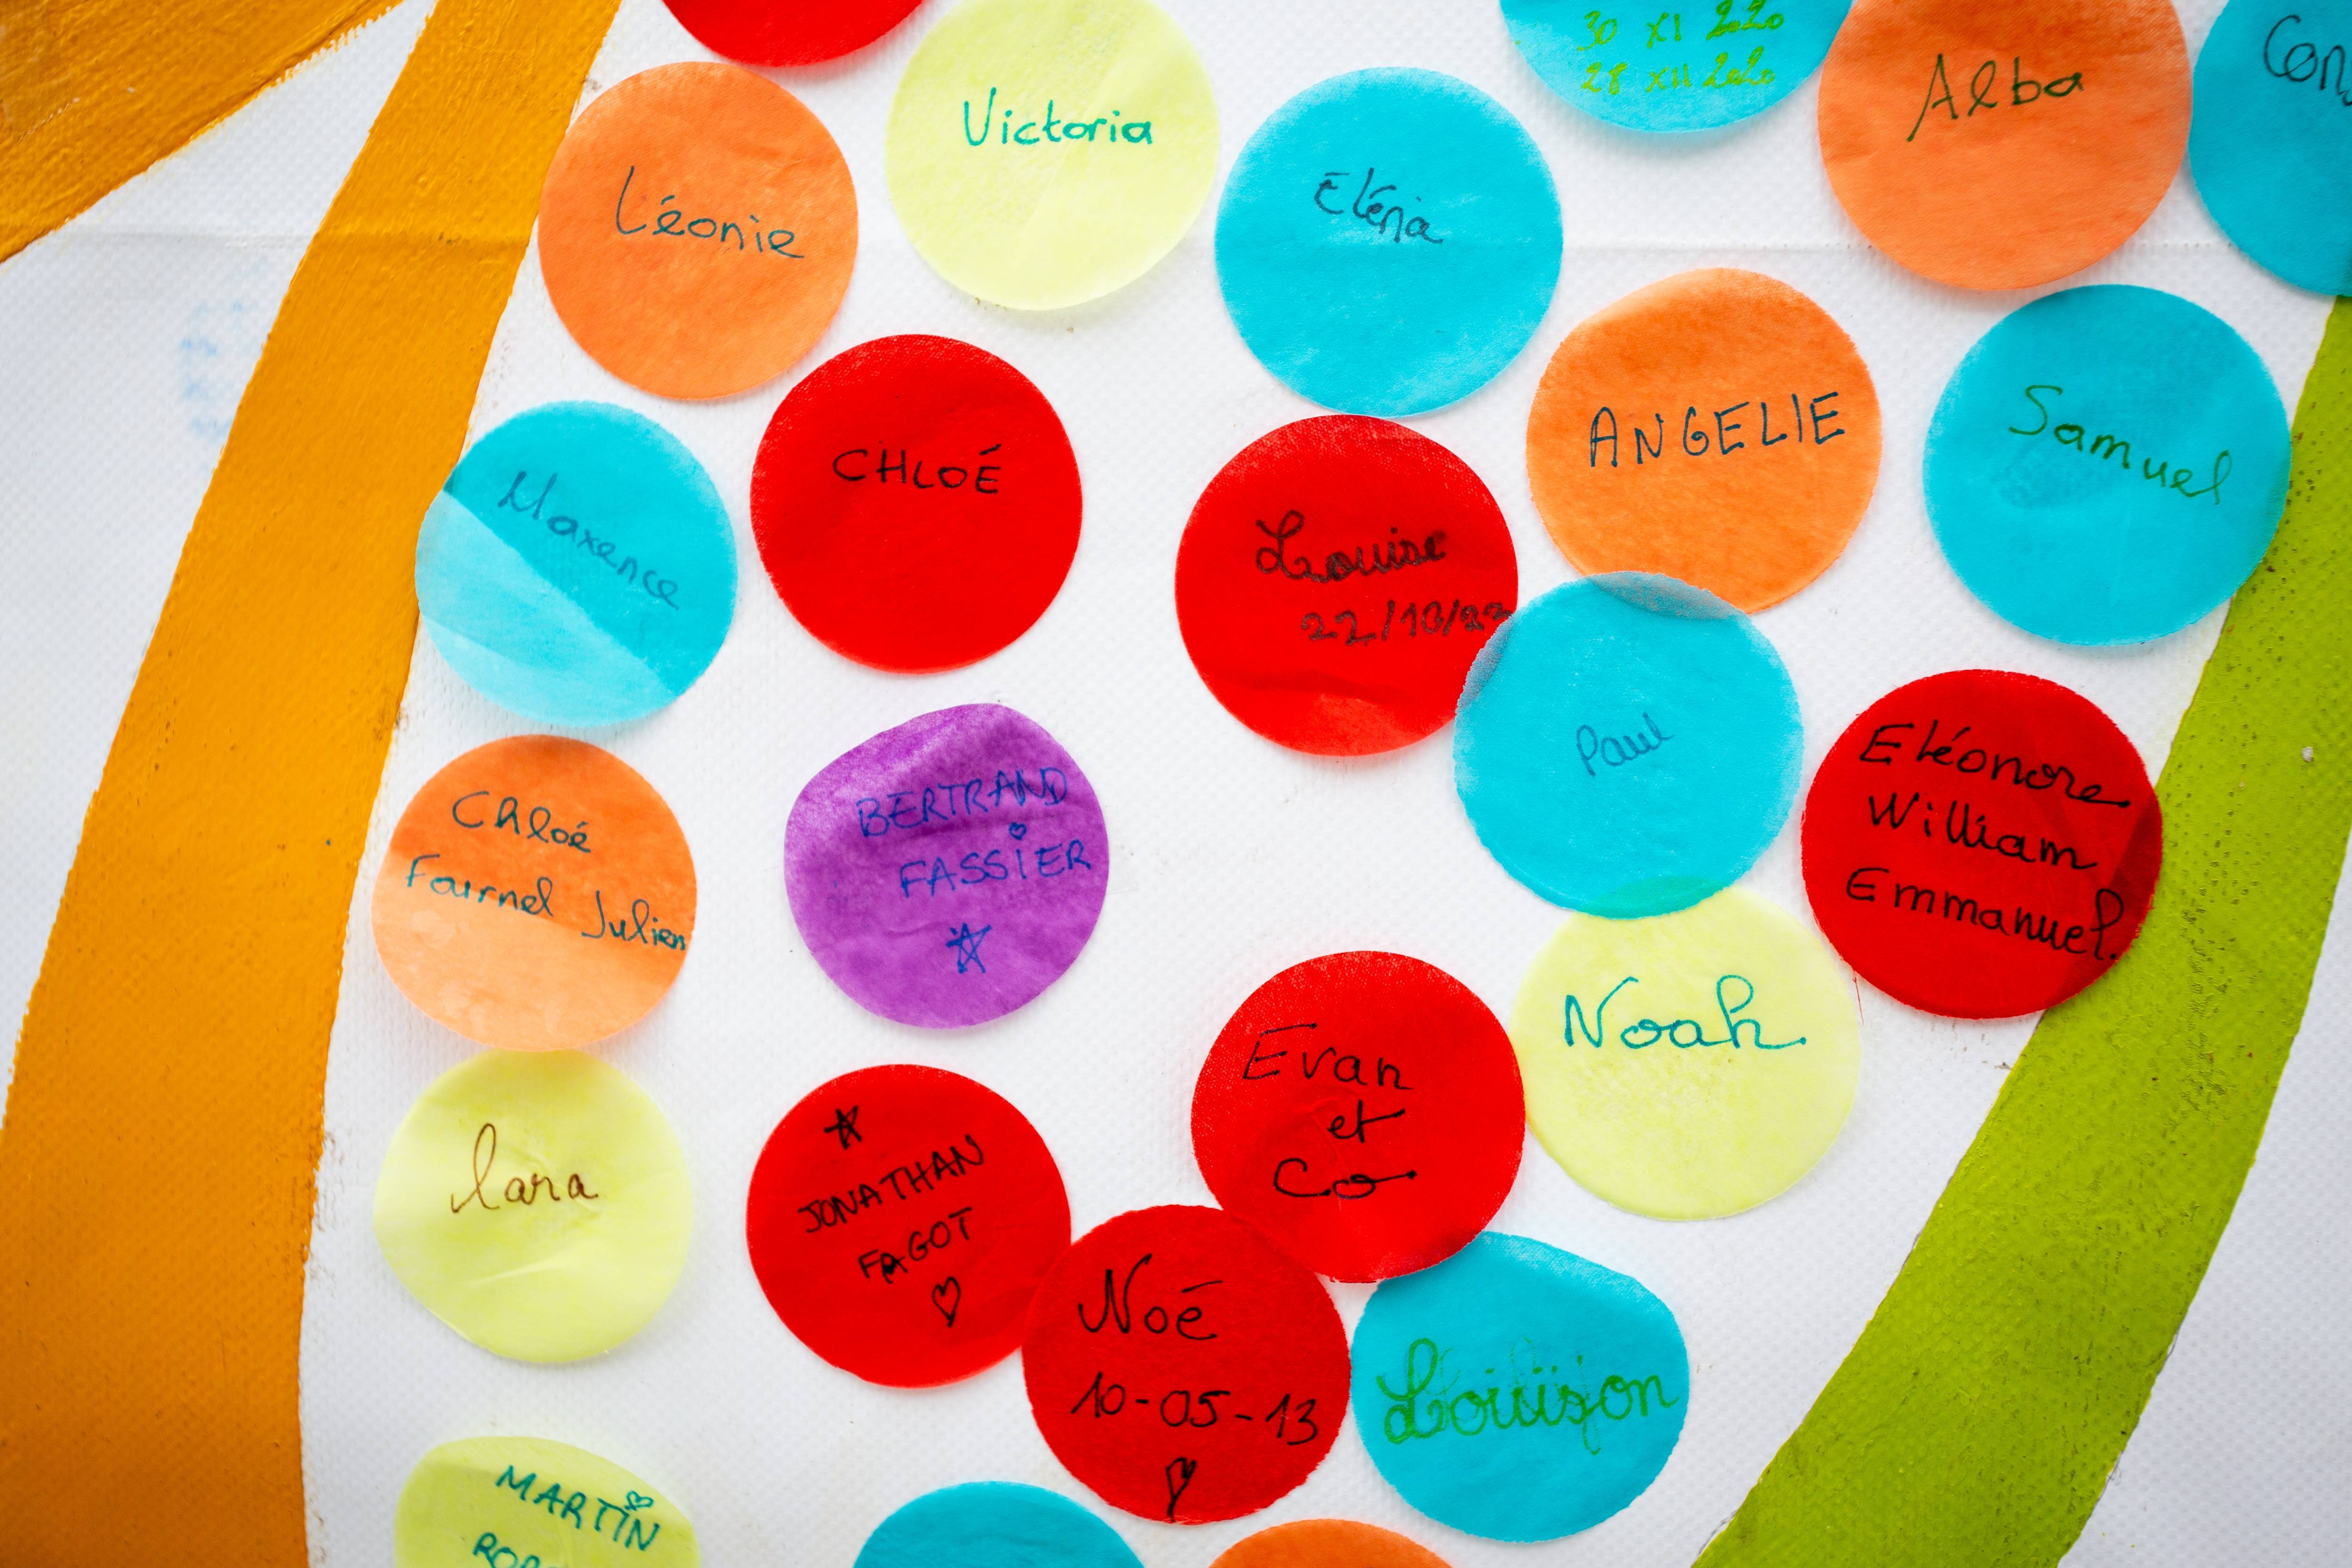 30 XI 2020
28 XII 2020
Alba
Victoria
Léonie
Eléna
ANGELIE
Samuel
CHLOÉ
Maxence
Louise
22/10/22
Paul
Eléonore
William
Emmanuel.
Chloé
Fournel Julien
BERTRAND
FASSIER
Noah.
Evan
et
Co
lara
JONATHAN
FAGOT
Noé
10-05-13
Louison
MARTIN